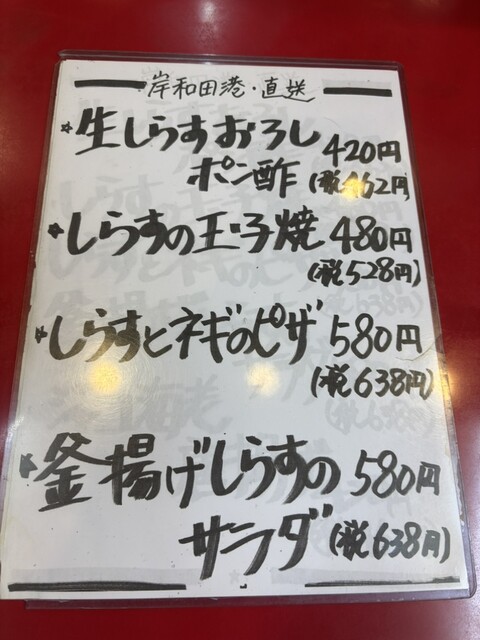 岸和田港・直送
☆生しらすおろし 420円
ポン酢 (税462円
☆しらすの玉子焼 480円
(税528円)
☆しらすとネギのピザ 580円
(税638円)
☆釜揚げしらすの 580円
サラダ (税638円)